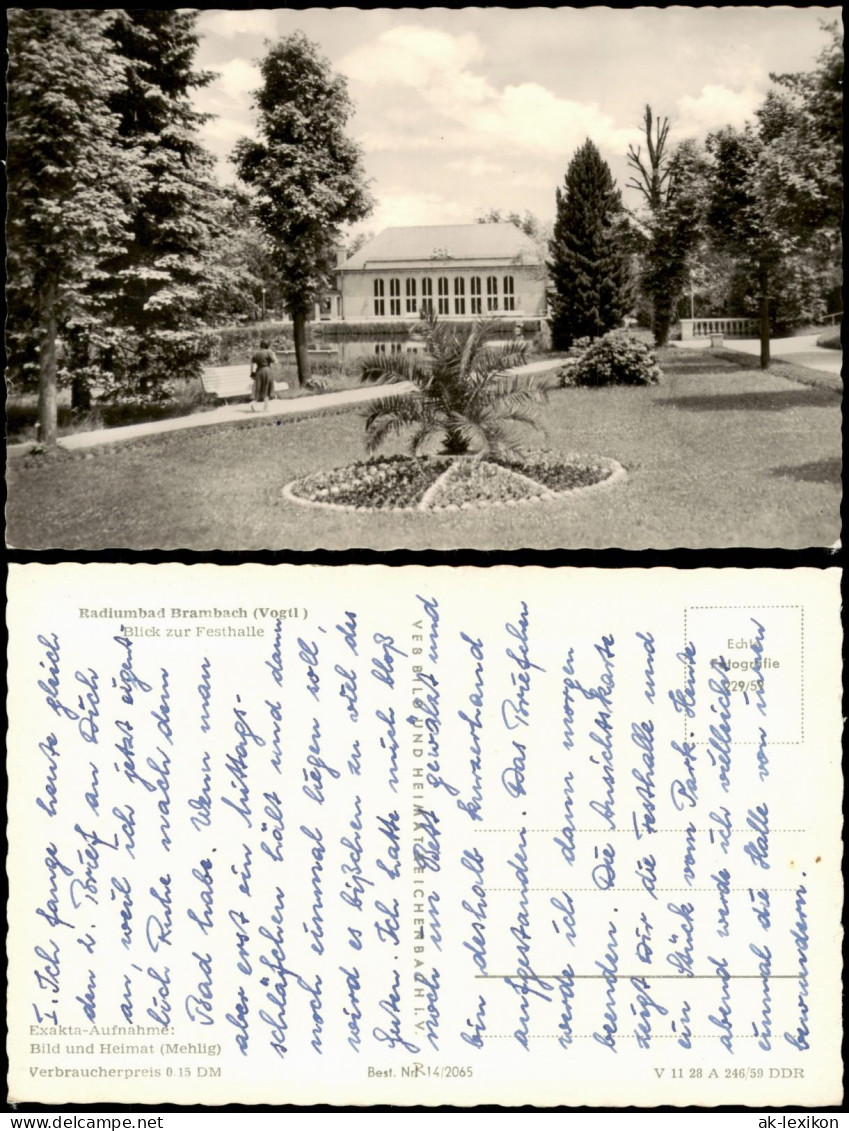 Radiumbad Brambach (Vogtl)
Blick zur Festhalle
Echte
Fotografie
229/59
VEB BILD UND HEIMAT REICHENBACH I. V.
I. Ich fange heute gleich
den 2. Brief an Dich
an, weil ich jetzt eigent-
lich Ruhe nach dem
Bad habe. Wenn man
aber erst ein Mittags-
schläfchen hält und dann
noch einmal liegen soll,
wird es bißchen zu viel des
Guten. Ich hatte mich bloß
noch im Bett gewälzt und
bin deshalb kurzerhand
aufgestanden. Das Briefchen
werde ich dann morgen
beenden. Die Ansichtskarte
zeigt Dir die Festhalle und
ein Stück vom Park. Heute
abend werde ich vielleicht
einmal die Halle von innen
bewundern.
Exakta-Aufnahme:
Bild und Heimat (Mehlig)
Verbraucherpreis 0.15 DM
Best. Nr. R 14/2065
V 11 28 A 246/59 DDR
ak-lexikon
ak-lexikon.com